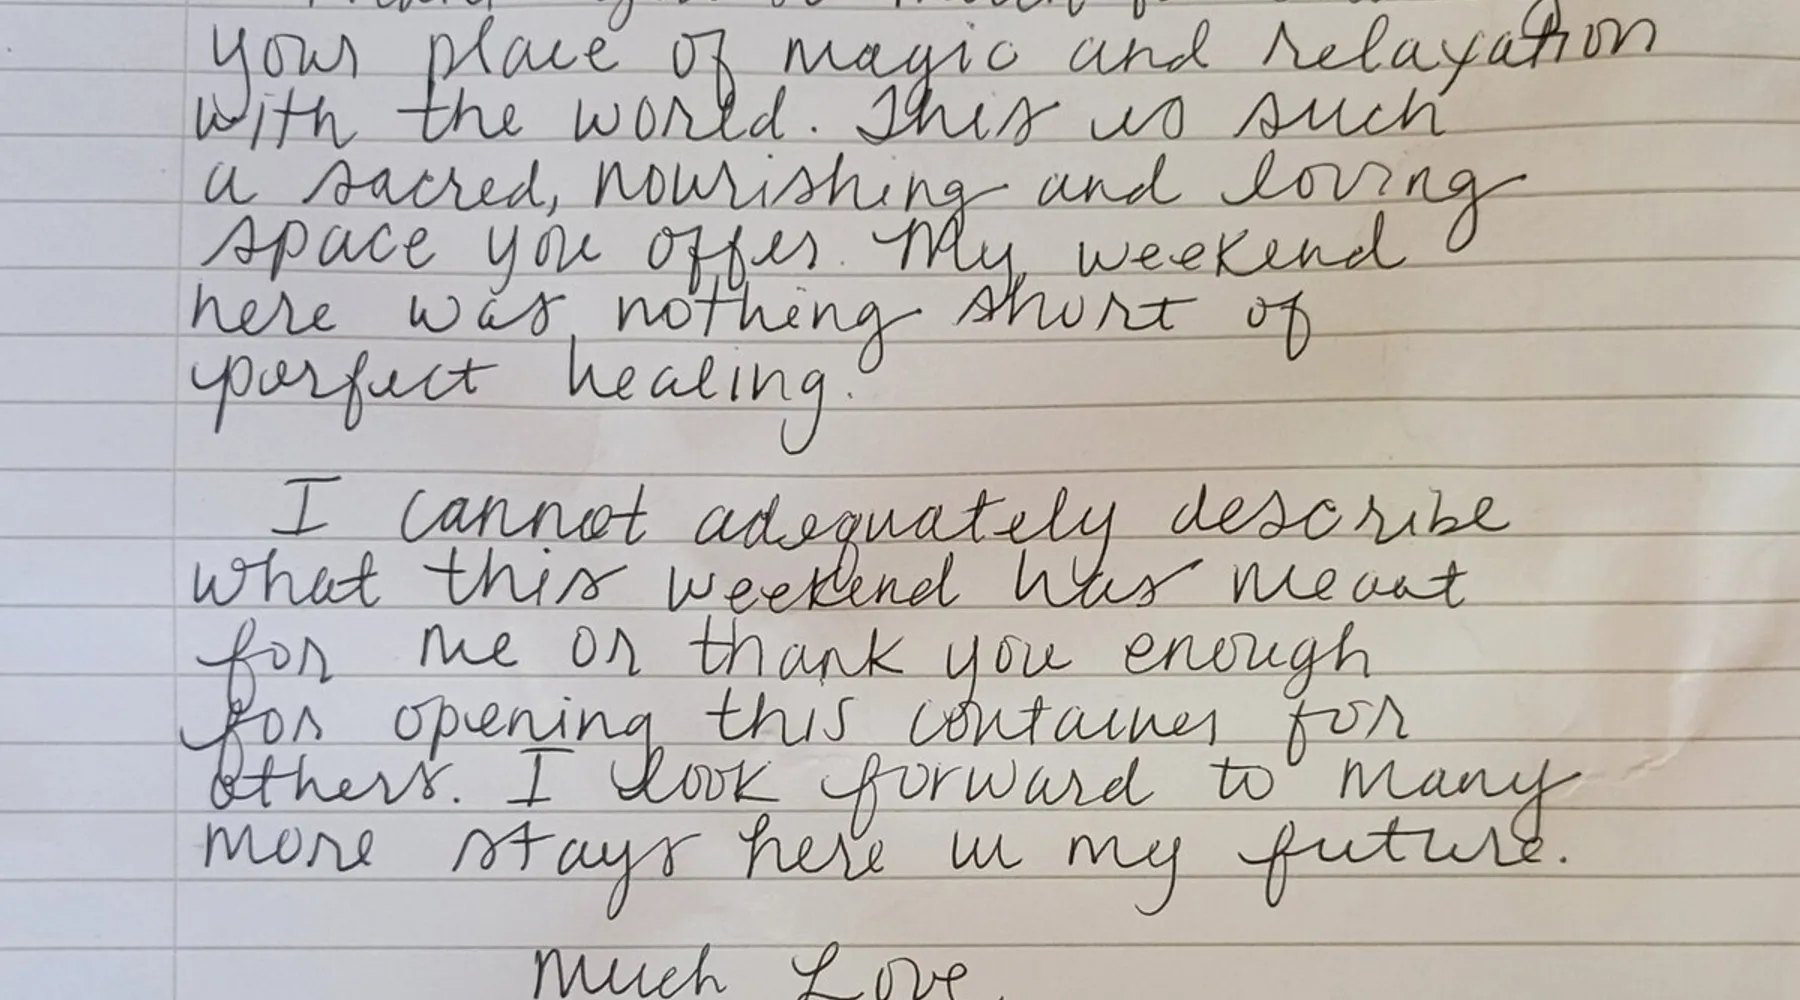 your place of magic and relaxation
with the world. This is such
a sacred, nourishing and loving
space you offer. My weekend
here was nothing short of
perfect healing.
I cannot adequately describe
what this weekend has meant
for me or thank you enough
for opening this container for
others. I look forward to many
more stays here in my future.
Much Love,